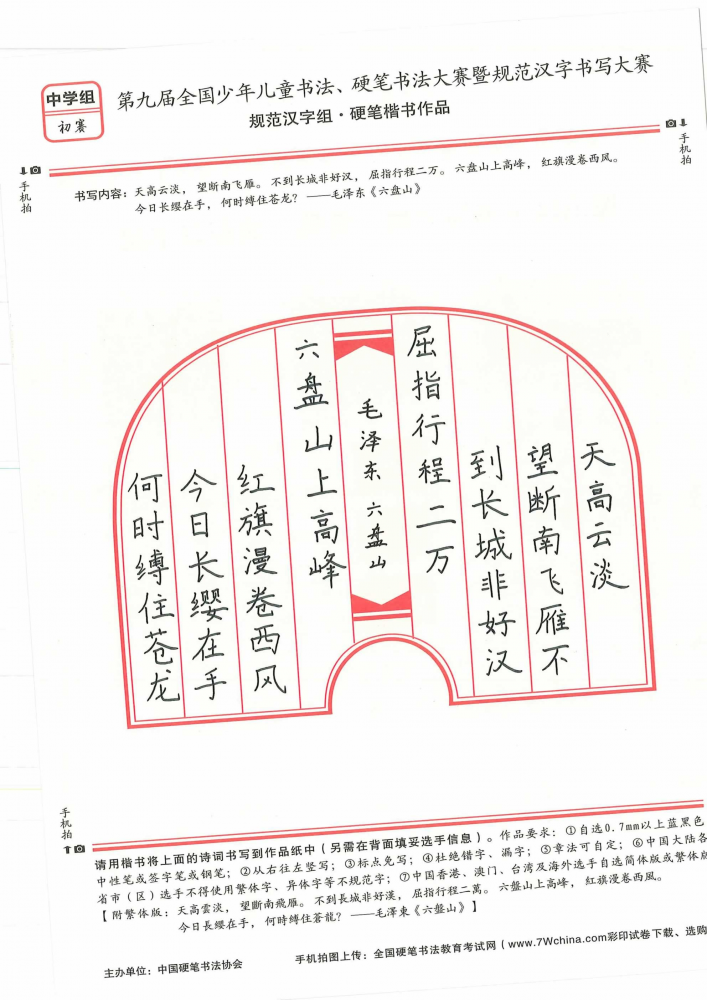 中学组
初赛
第九届全国少年儿童书法、硬笔书法大赛暨规范汉字书写大赛
规范汉字组·硬笔楷书作品
手机拍
手机拍
书写内容：天高云淡，望断南飞雁。不到长城非好汉，屈指行程二万。六盘山上高峰，红旗漫卷西风。
今日长缨在手，何时缚住苍龙？——毛泽东《六盘山》
天高云淡
望断南飞雁不
到长城非好汉
屈指行程二万
毛泽东 六盘山
六盘山上高峰
红旗漫卷西风
今日长缨在手
何时缚住苍龙
手机拍
请用楷书将上面的诗词书写到作品纸中（另需在背面填妥选手信息）。作品要求：①自选0.7mm以上蓝黑色
中性笔或签字笔或钢笔；②从右往左竖写；③标点免写；④杜绝错字、漏字；⑤章法可自定；⑥中国大陆各
省市（区）选手不得使用繁体字、异体字等不规范字；⑦中国香港、澳门、台湾及海外选手自选简体版或繁体版
【附繁体版：天高雲淡，望斷南飛雁。不到長城非好漢，屈指行程二萬。六盤山上高峰，紅旗漫卷西風。
今日長纓在手，何時縛住蒼龍？——毛澤東《六盤山》】
主办单位：中国硬笔书法协会
手机拍图上传：全国硬笔书法教育考试网（www.7Wchina.com彩印试卷下载、选购